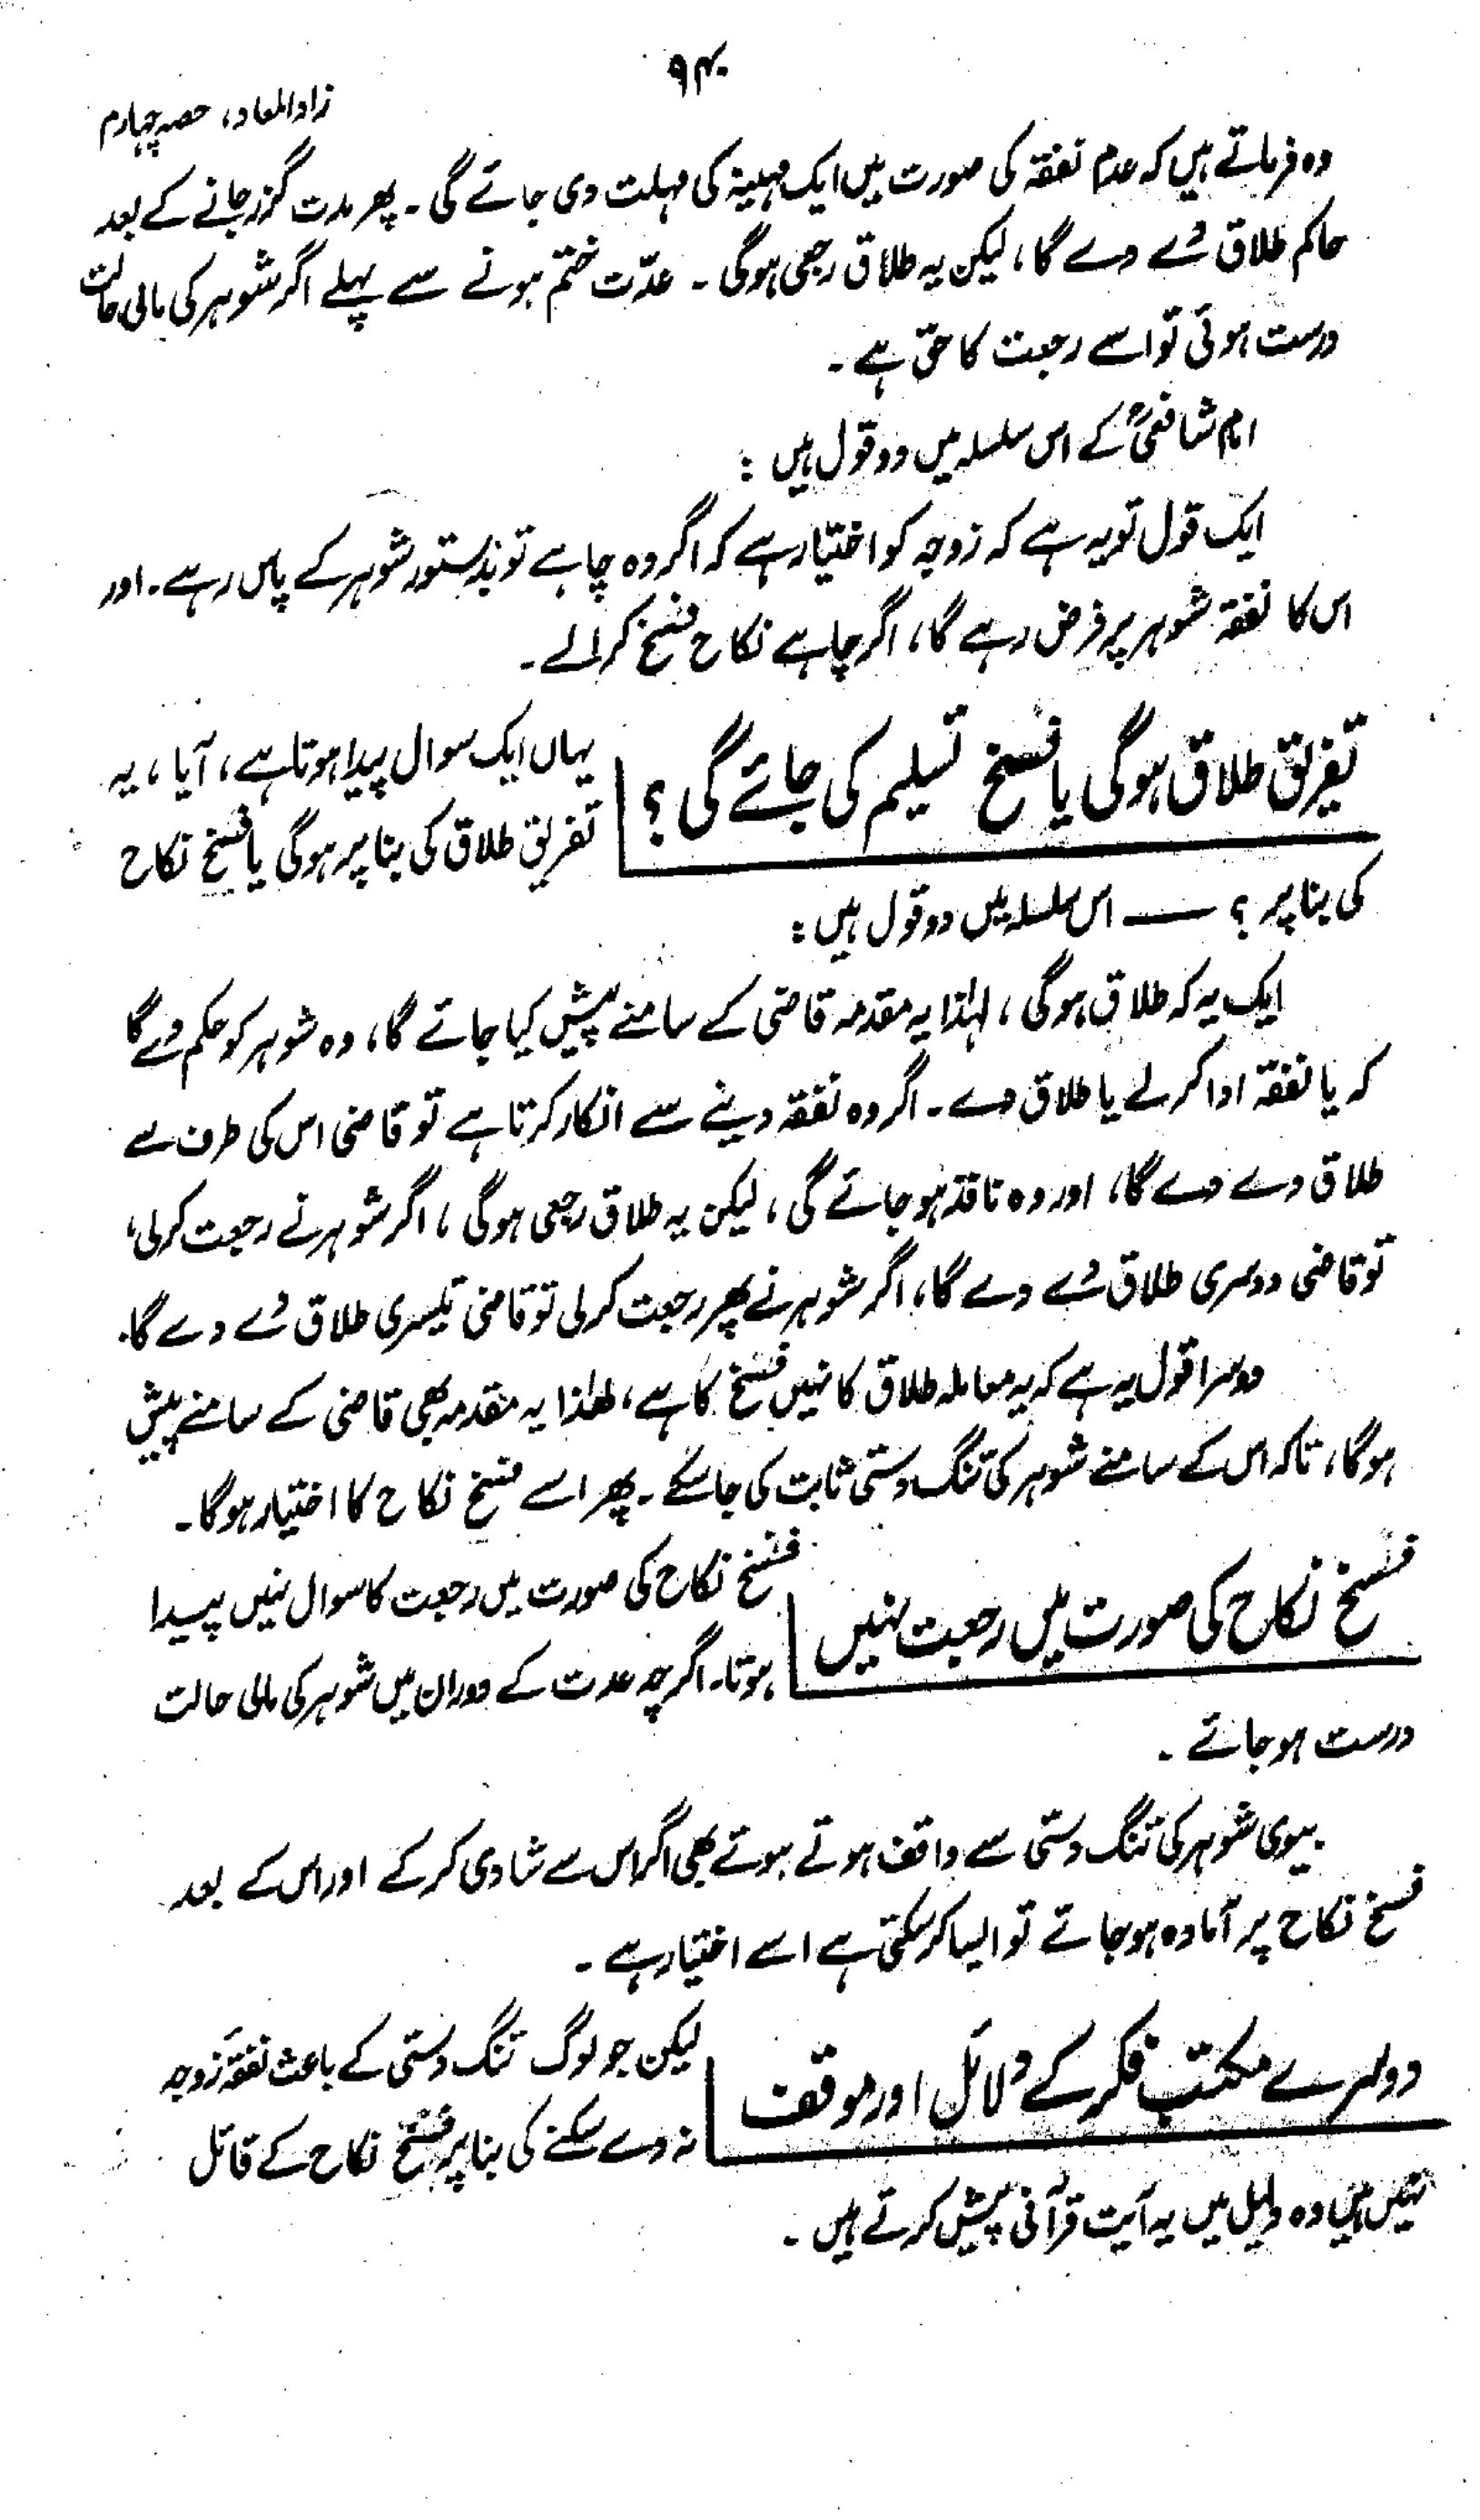 ۹۴۰
زادالمعاد، حصہ چہارم
وہ فرماتے ہیں کہ عدم نفقہ کی صورت میں ایک مہینہ کی مہلت دی جائے گی۔ پھر مدت گزر جانے کے بعد
حاکم طلاق دے دے گا، لیکن یہ طلاق رجعی ہوگی۔ عدّت ختم ہونے سے پہلے اگر شوہر کی مالی حالت
درست ہوئی تو اسے رجعت کا حق ہے۔
امام شافعیؒ کے اس سلسلہ میں دو قول ہیں :
ایک قول تو یہ ہے کہ زوجہ کو اختیار ہے کہ اگر وہ چاہے تو بدستور شوہر کے پاس رہے۔ اور
اس کا نفقہ شوہر پر فرض رہے گا، اگر چاہے نکاح فسخ کرالے۔
تفریق طلاق ہوگی یا فسخ تسلیم کی جائے گی؟
یہاں ایک سوال پیدا ہوتا ہے، آیا، یہ
تفریق طلاق کی بنا پر ہوگی یا فسخ نکاح
کی بنا پر ؟ — اس سلسلہ میں دو قول ہیں :
ایک یہ کہ طلاق ہوگی، لہٰذا یہ مقدمہ قاضی کے سامنے پیش کیا جائے گا، وہ شوہر کو حکم دے گا
کہ یا نفقہ ادا کرلے یا طلاق دے۔ اگر وہ نفقہ دینے سے انکار کرتا ہے تو قاضی اس کی طرف سے
طلاق دے دے گا، اور وہ نافذ ہو جائے گی، لیکن یہ طلاق رجعی ہوگی، اگر شوہر نے رجعت کرلی،
تو قاضی دوسری طلاق دے دے گا، اگر شوہر نے پھر رجعت کرلی تو قاضی تیسری طلاق دے دے گا۔
دوسرا قول یہ ہے کہ یہ معاملہ طلاق کا نہیں فسخ کا ہے، لہٰذا یہ مقدمہ بھی قاضی کے سامنے پیش
ہوگا، تاکہ اس کے سامنے شوہر کی تنگ دستی ثابت کی جاسکے۔ پھر اسے فسخ نکاح کا اختیار ہوگا۔
فسخ نکاح کی صورت میں رجعت نہیں
فسخ نکاح کی صورت میں رجعت کا سوال نہیں پیدا
ہوتا۔ اگرچہ عدت کے دوران میں شوہر کی مالی حالت
درست ہو جائے۔
بیوی شوہر کی تنگ دستی سے واقف ہوتے ہوئے بھی اگر اس سے شادی کرکے اور اس کے بعد
فسخ نکاح پر آمادہ ہو جائے تو ایسا کرسکتی ہے اسے اختیار ہے۔
دوسرے مکتب فکر کے دلائل اور موقف
لیکن جو لوگ تنگ دستی کے باعث نفقہ زوجہ
نہ دے سکنے کی بنا پر فسخ نکاح کے قائل
نہیں ہیں وہ دلیل میں یہ آیت قرآنی پیش کرتے ہیں۔